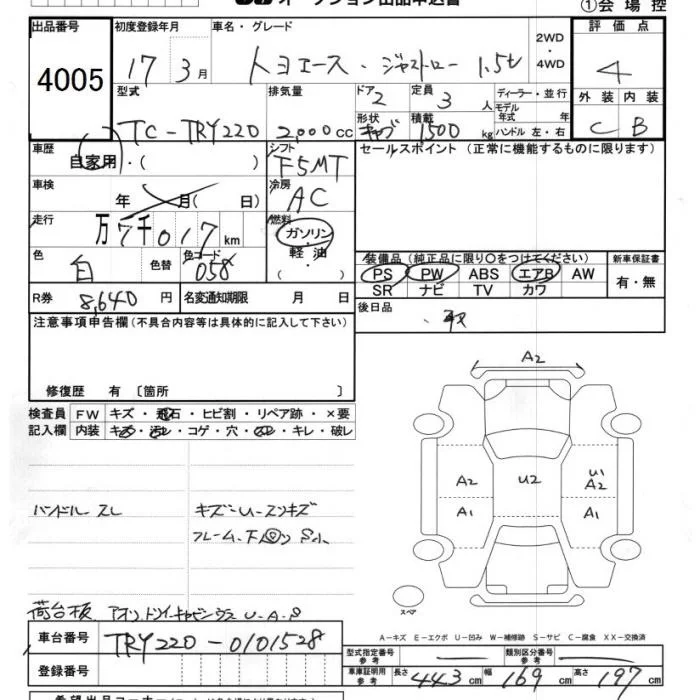 ①会場控
出品番号
4005
初度登録年月
17 3月
車名・グレード
トヨエース・ジャストロー 1.5t
2WD・4WD
評価点
4
外装 内装
C B
型式
TC-TRY220
排気量
2,000cc
ドア
2
定員
3人
形状
キャブ
積載
1500kg
ディーラー・並行
モデル年式 年
ハンドル 左・右
車歴
自家用・( )
シフト
F5MT
セールスポイント(正常に機能するものに限ります)
車検
年 月( 日)
冷房
AC
走行
万7千017km
燃料
ガソリン
軽油
( )
色
白
色替
色コード
058
装備品(純正品に限り○をつけてください)
PS PW ABS エアB AW
SR ナビ TV カワ
新車保証書
有・無
R券
8,640円
名変通知期限 月 日
後日品
注意事項申告欄(不具合内容等は具体的に記入して下さい)
修復歴 有 〔箇所 〕
検査員記入欄
FW キズ・飛石・ヒビ割・リペア跡・×要
内装 キズ・汚れ・コゲ・穴・・キレ・破レ
ハンドル スレ
キズ-U-スリキズ
フレーム、下 S小
荷台板 アオリ U-A-S
A2
A2
A1
U2
U1
A2
A1
スペア
A-キズ E-エクボ U-凹み W-補修跡 S-サビ C-腐食 XX-交換済
車台番号
TRY220-0101528
登録番号
型式指定番号 参考
類別区分番号 参考
車庫証明用 参考
長さ 443cm 幅 169cm 高さ 197cm